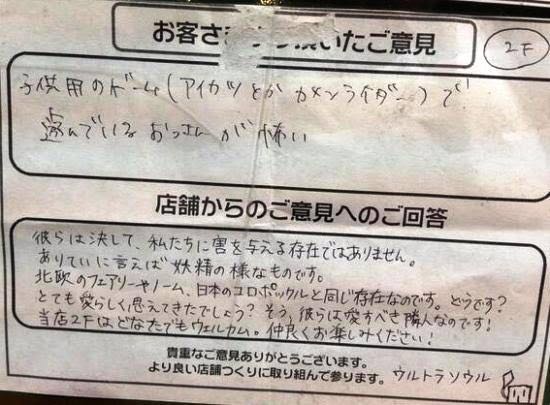 お客さ いたご意見
2F
子供用のゲーム(アイカツとかカメンライダー)で
遊んでいるおっさんが怖い
店舗からのご意見へのご回答
彼らは決して、私たちに害を与える存在ではありません。
ありていに言えば妖精の様なものです。
北欧のフェアリーやノーム、日本のコロポックルと同じ存在なのです。どうです?
とても愛らしく思えてきたでしょう?そう、彼らは愛すべき隣人なのです!
当店2Fはどなたでもウェルカム。仲良くお楽しみください!
貴重なご意見ありがとうございます。
より良い店舗つくりに取り組んで参ります。ウルトラソウル